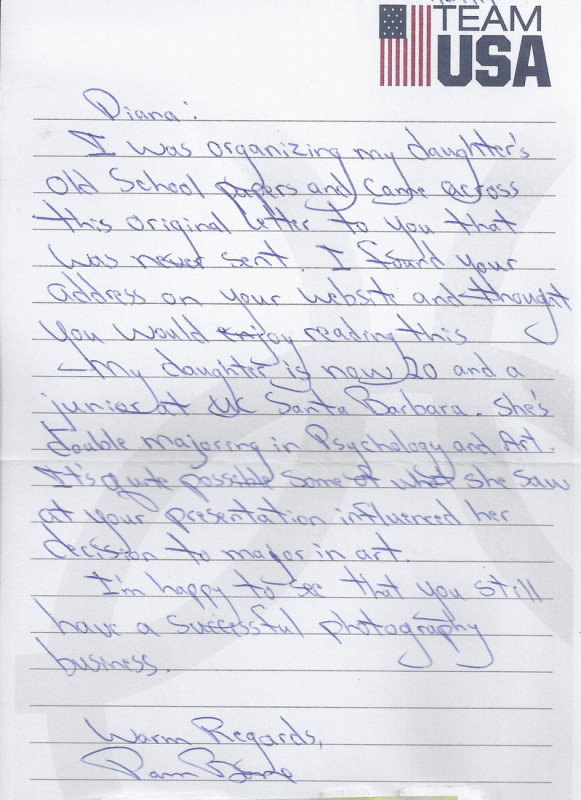 TEAM
USA
Diana:
I was organizing my daughter's
old School papers and came across
this original letter to you that
was never sent. I found your
address on your website and thought
you would enjoy reading this
- My daughter is now 20 and a
junior at UC Santa Barbara. She's
double majoring in Psychology and Art.
It's quite possible some of what she saw
at your presentation influenced her
decision to major in art.
I'm happy to see that you still
have a successful photography
business.
Warm Regards,
Pam